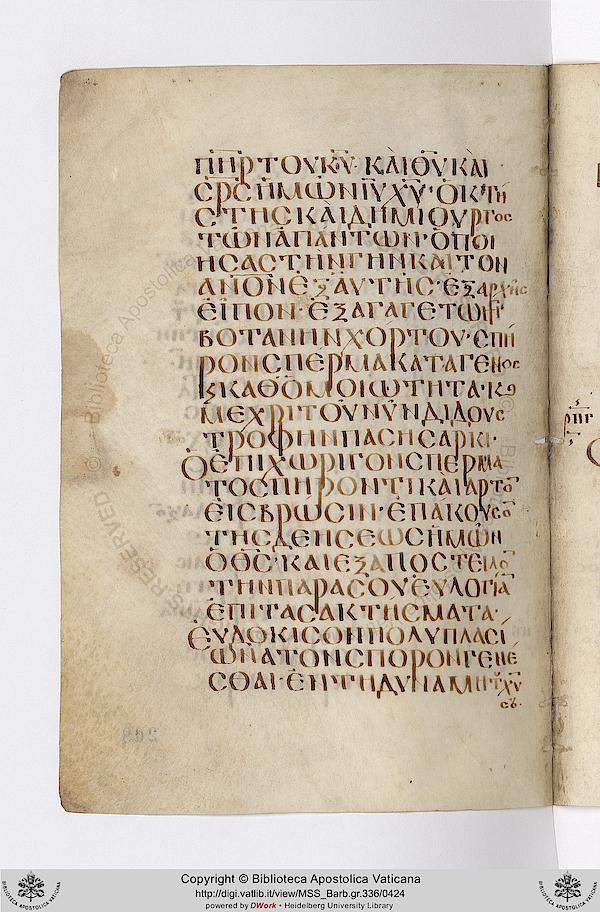 ΠΗΡ ΤΟΥ ΚΥ· ΚΑΙ ΘΥ ΚΑΙ
ϹΡϹ ΗΜΩΝ ΙΥ ΧΥ· Ο ΚΤΗ
ϹΤΗϹ ΚΑΙ ΔΗΜΙΟΥΡΓΟϹ
ΤΩΝ ΑΠΑΝΤΩΝ· Ο ΠΟΙ
ΗϹΑϹ ΤΗΝ ΓΗΝ ΚΑΙ ΤΟΝ
ΑΝΟΝ ΕΞ ΑΥΤΗϹ· ΕΞ ΑΡΧΗϹ
ΕΙΠΟΝ· ΕΞΑΓΑΓΕΤΩ Η ΓΗ
ΒΟΤΑΝΗΝ ΧΟΡΤΟΥ· ϹΠΗ
ΡΟΝ ϹΠΕΡΜΑ ΚΑΤΑ ΓΕΝΟϹ
Κ ΚΑΘ ΟΜΟΙΩΤΗΤΑ· Κ
ΜΕΧΡΙ ΤΟΥ ΝΥΝ ΔΙΔΟΥϹ
ΤΡΟΦΗΝ ΠΑϹΗ ϹΑΡΚΙ·
Ο ΕΠΙΧΩΡΙΓΟΝ ϹΠΕΡΜΑ
ΤΟϹ ΠΗΡΟΝΤΙ ΚΑΙ ΑΡΤΟ
ΕΙϹ ΒΡΩϹΙΝ· ΕΠΑΚΟΥϹΟ
ΤΗϹ ΔΕΗϹΕΩϹ ΗΜΩΝ
Ο ΘϹ· ΚΑΙ ΕΞΑΠΟϹΤΕΙΛΟ
ΤΗΝ ΠΑΡΑ ϹΟΥ ΕΥΛΟΓΙΑ
ΕΠΙ ΤΑϹ ΑΚΤΗϹΜΑΤΑ·
ΕΥΔΟΚΙϹΟΝ ΠΟΛΥΠΛΑϹΙ
ΩΝΑ ΤΟΝ ϹΠΟΡΟΝ ΓΕΝΕ
ϹΘΑΙ· ΕΝ ΤΗ ΔΥΝΑΜΗ Τ ΧΥ
ϹΥ·
Copyright © Biblioteca Apostolica Vaticana
http://digi.vatlib.it/view/MSS_Barb.gr.336/0424
powered by DWork • Heidelberg University Library